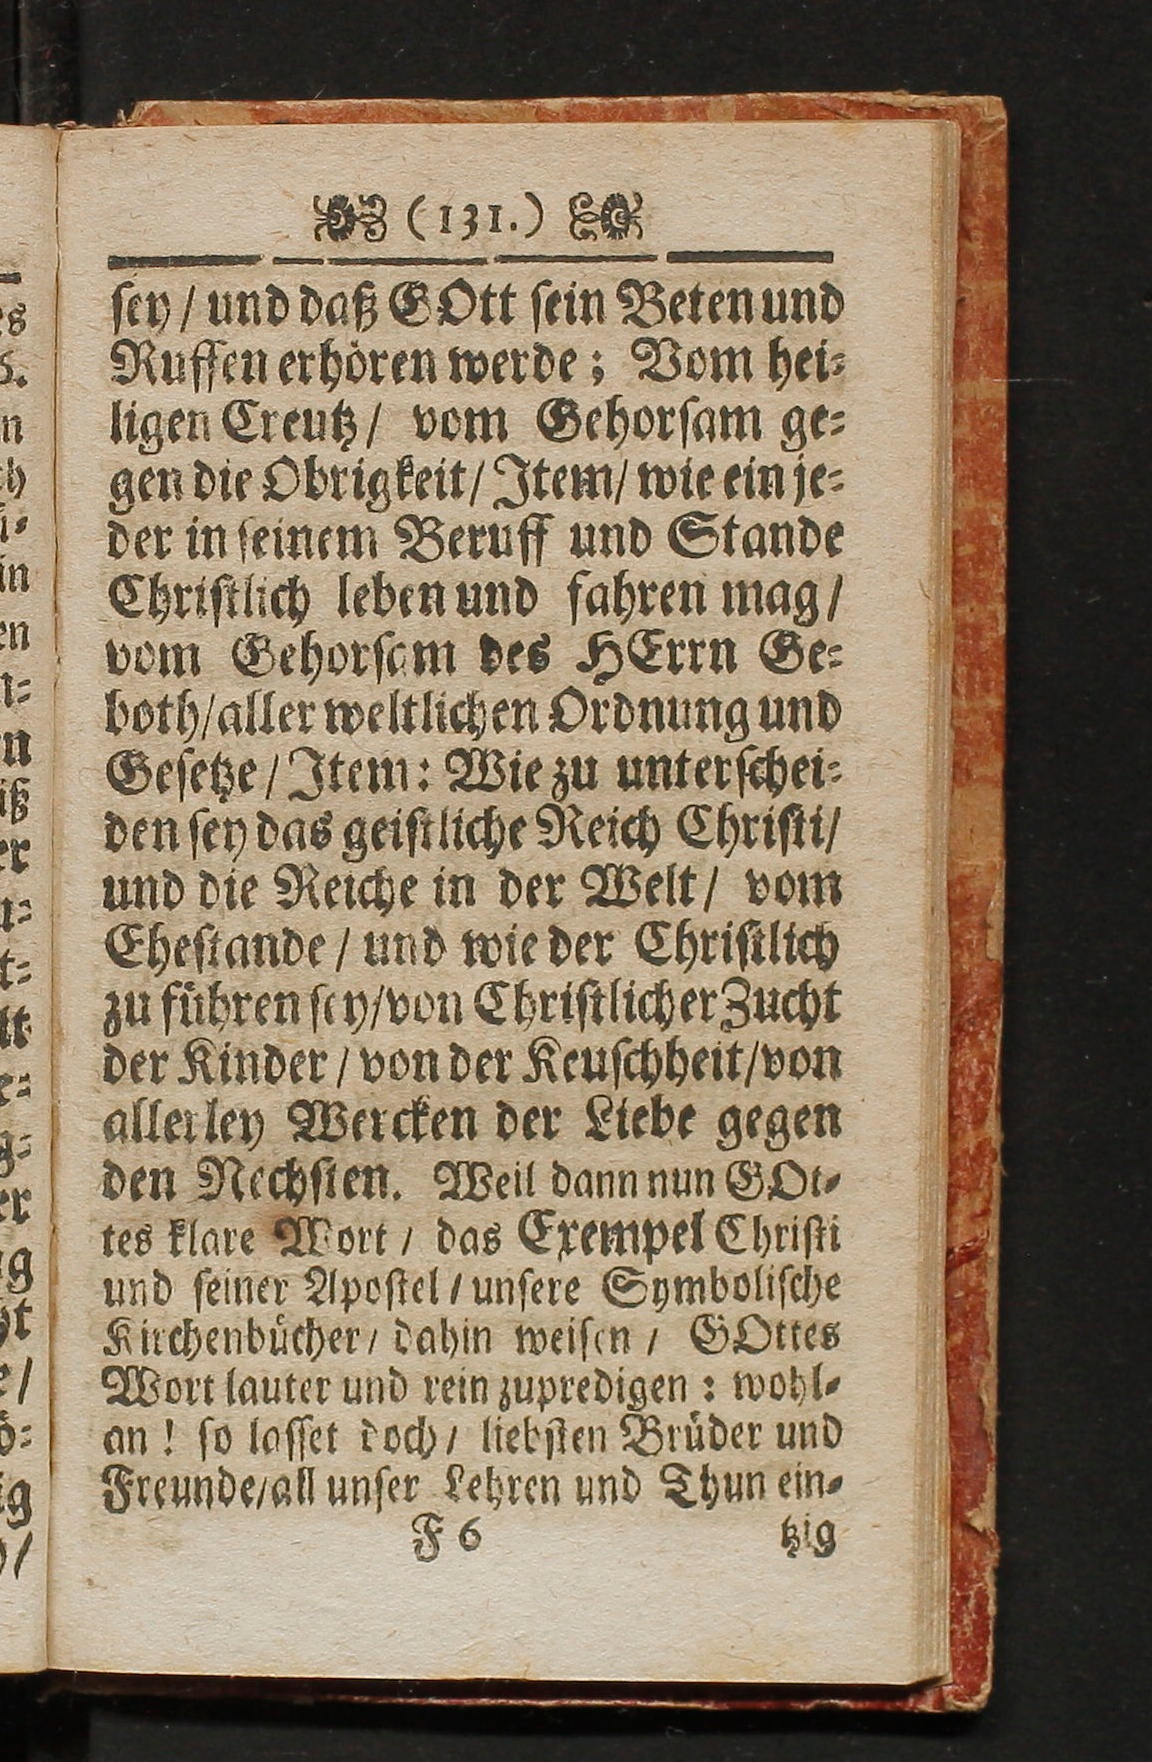 (131.)
sey / und daß GOtt sein Beten und
Ruffen erhören werde; Vom hei-
ligen Creutz / vom Gehorsam ge-
gen die Obrigkeit / Item / wie ein je-
der in seinem Beruff und Stande
Christlich leben und fahren mag /
vom Gehorsam des HErrn Ge-
both / aller weltlichen Ordnung und
Gesetze / Item: Wie zu unterschei-
den sey das geistliche Reich Christi /
und die Reiche in der Welt / vom
Ehestande / und wie der Christlich
zu führen sey / von Christlicher Zucht
der Kinder / von der Keuschheit / von
allerley Wercken der Liebe gegen
den Nechsten. Weil dann nun GOt-
tes klare Wort / das Exempel Christi
und seiner Apostel / unsere Symbolische
Kirchenbücher / dahin weisen / GOttes
Wort lauter und rein zupredigen: wohl-
an! so lasset doch / liebsten Brüder und
Freunde / all unser Lehren und Thun ein-
F 6 tzig